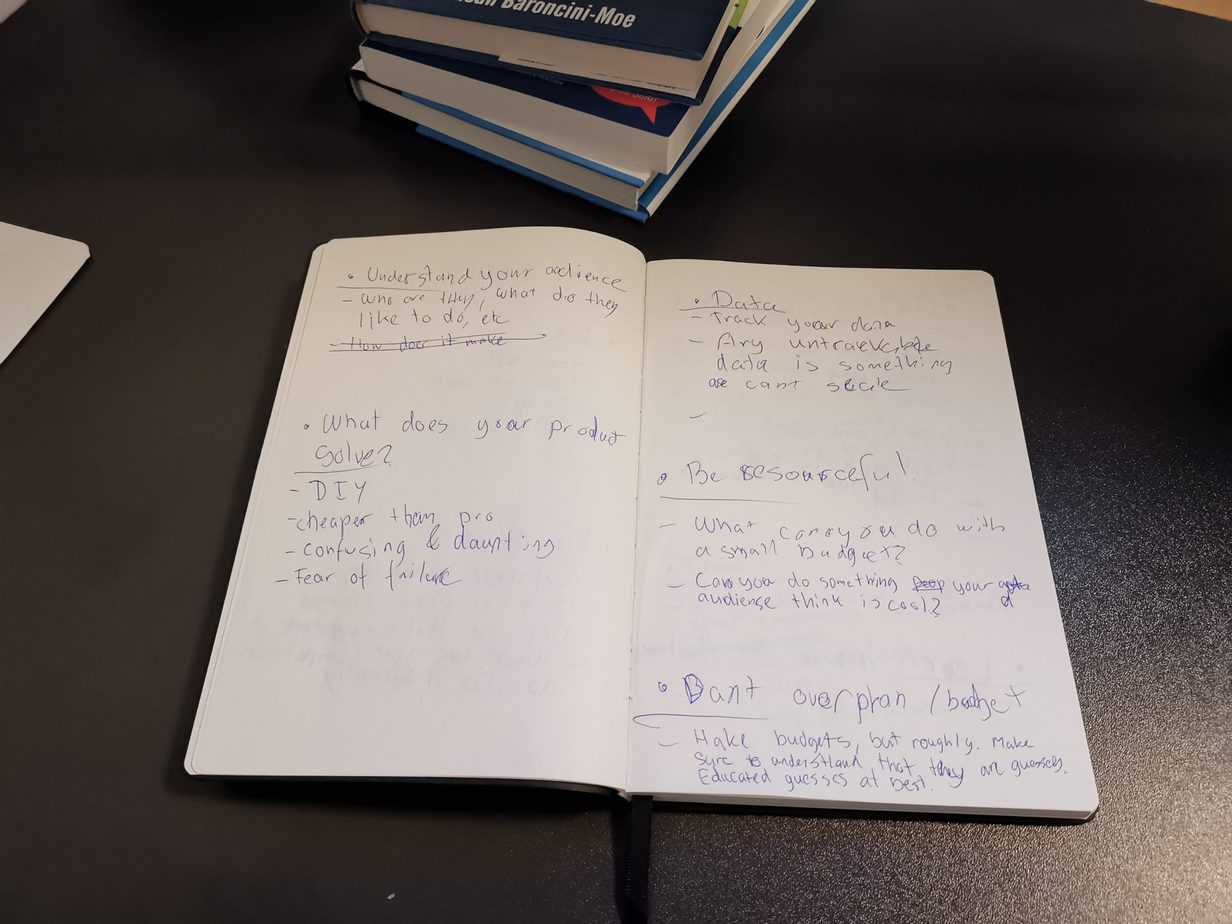 Baroncini-Moe
• Understand your audience
- Who are they, what do they
like to do, etc
- How does it make
• What does your product
solve?
- DIY
- cheaper than pro
- confusing & daunting
- Fear of failure
• Data
- Track your data
- Any
data is something
we cant scale
-
• Be resourceful.
- What can you do with
a small budget?
- Can you do something your
audience think is cool?
• Dont overplan / budget
- Make budgets, but roughly. Make
sure to understand that they are guesses.
Educated guesses at best.